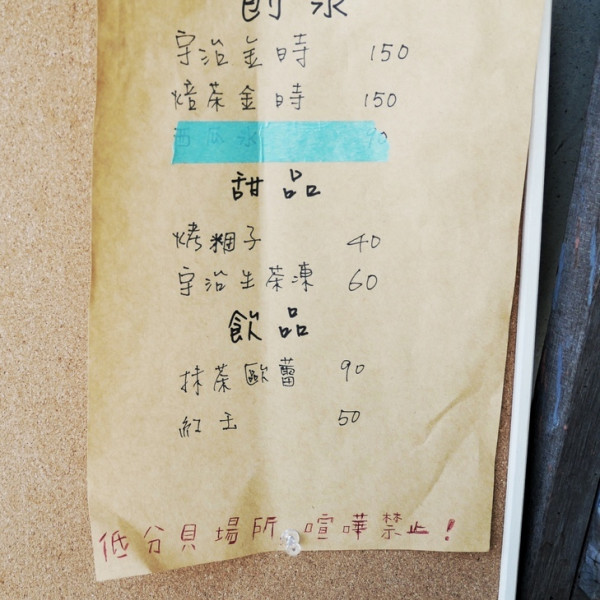 刨冰
宇治金時 150
焙茶金時 150
西瓜冰 90
甜品
烤糰子 40
宇治生茶凍 60
飲品
抹茶歐蕾 90
紅玉 50
低分貝場所,喧嘩禁止!